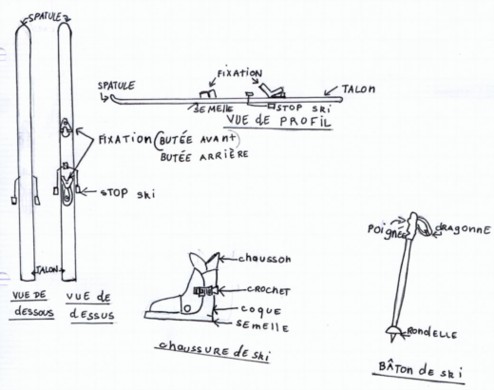 SPATULE
FIXATION
SPATULE
TALON
SEMELLE
STOP SKI
VUE DE PROFIL
FIXATION (BUTÉE AVANT)
BUTÉE ARRIÈRE
STOP SKI
TALON
VUE DE
DESSOUS
VUE DE
DESSUS
chausson
CROCHET
COQUE
SEMELLE
chaussure de ski
POIGNÉE
DRAGONNE
RONDELLE
BÂTON DE SKI